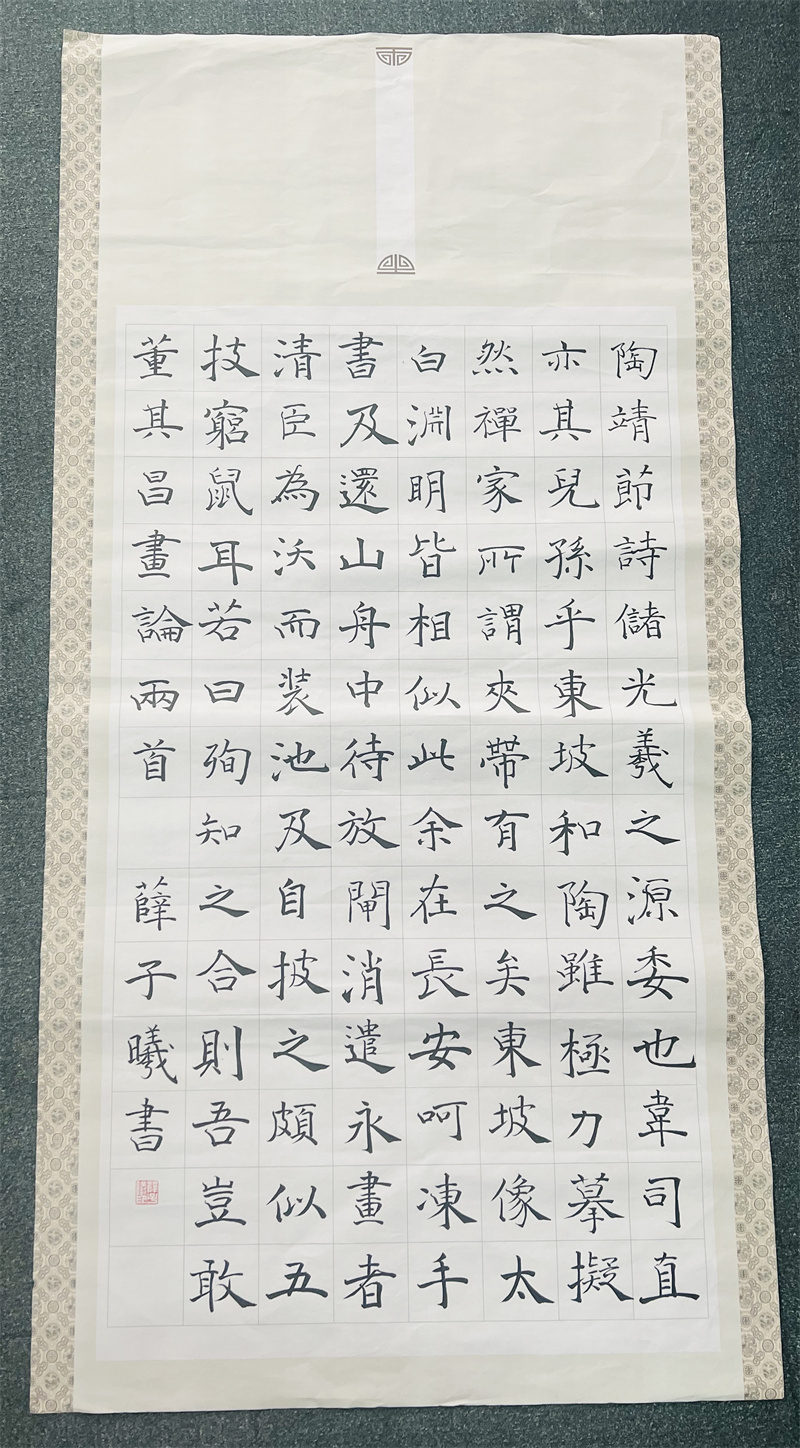 陶靖節詩儲光羲之源委也韋司直
亦其兒孫乎東坡和陶雖極力摹擬
然禪家所謂夾帶有之矣東坡像太
白淵明皆相似此余在長安呵凍手
書及還山舟中待放閘消遣永晝者
清臣為沃而装池及自披之頗似五
技窮鼠耳若曰殉知之合則吾豈敢
董其昌畫論兩首 薛子曦書